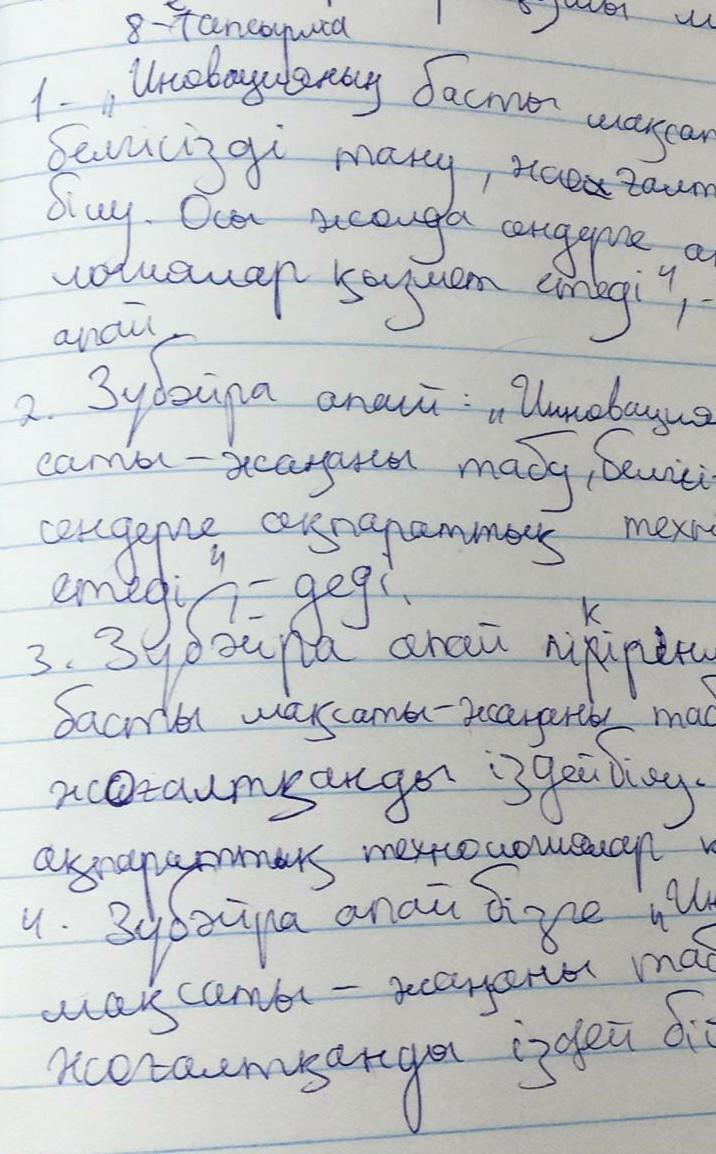 8-тапсырма
1- „Иновацияның басты мақсат
белгісізді тану, жоғалт
білу. Осы жолда сендерге а
логиялар қызмет етеді", -
апай.
2. Зубәйра апай: „Инновация
саты-жаңаны табу, белгісі
сендерге ақпараттық техн
етеді" - деді.
3. Зубәйра апай пікірін
басты мақсаты-жаңаны таб
жоғалтқанды іздей білу.
ақпараттық технологиялар қ
4. Зубәйра апай бізге „Ин
мақсаты - жаңаны таб
жоғалтқанды іздей біл